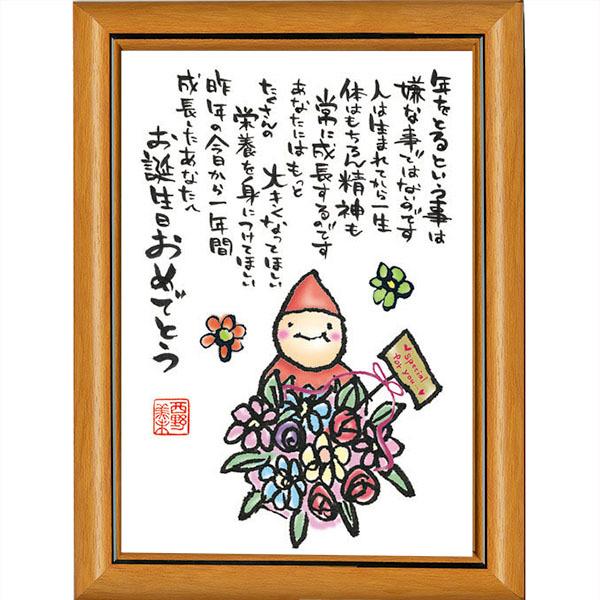 年をとるという事は
嫌な事ではないのです
人は生まれてから一生
体はもちろん精神も
常に成長するのです
あなたにはもっと
大きくなってほしい
たくさんの
栄養を身につけてほしい
昨年の今日から一年間
成長したあなたへ
お誕生日おめでとう
Special
for you
西野
美未